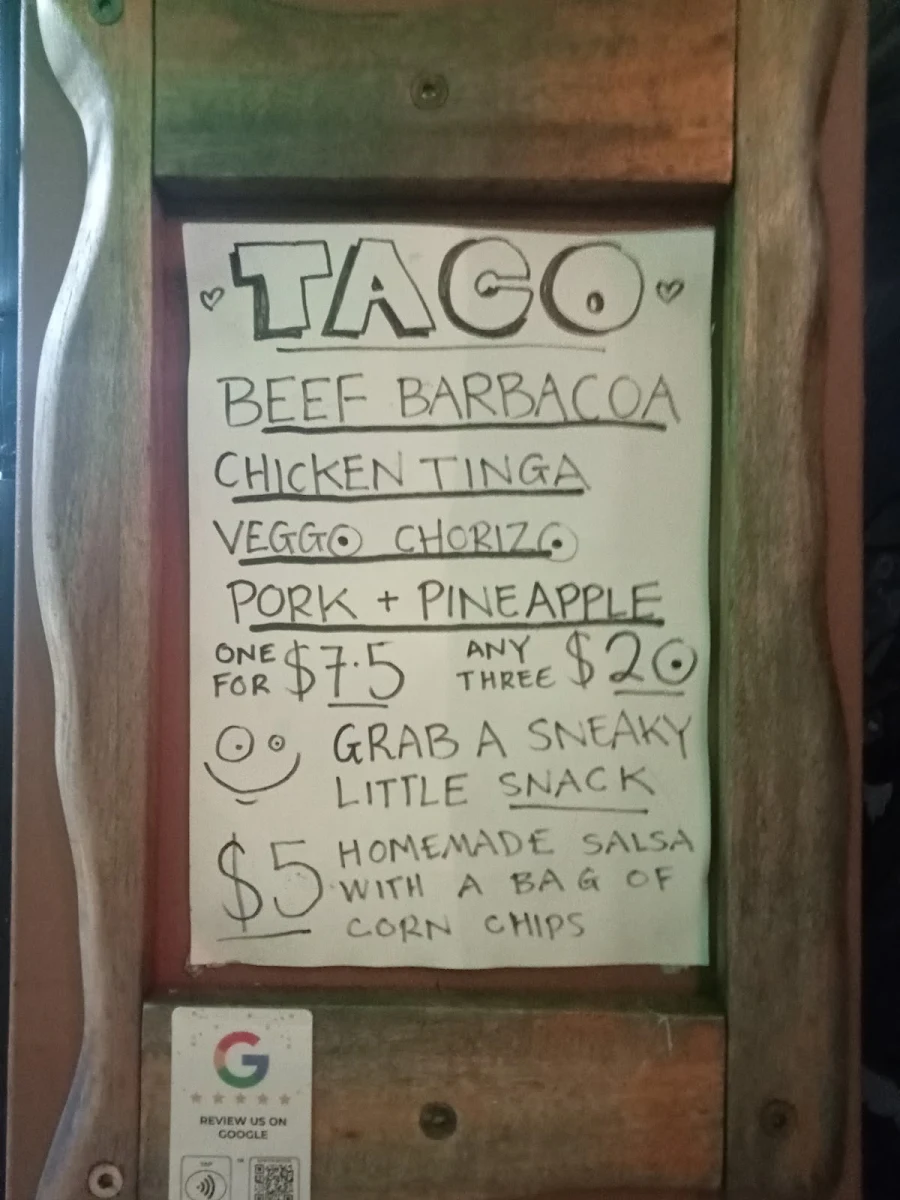 TACO
BEEF BARBACOA
CHICKEN TINGA
VEGGO CHORIZO
PORK + PINEAPPLE
ONE FOR $7.5 ANY THREE $20
GRAB A SNEAKY
LITTLE SNACK
$5 HOMEMADE SALSA
WITH A BAG OF
CORN CHIPS
G
REVIEW US ON
GOOGLE